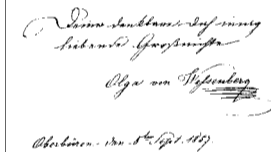 Deine dankbare, Dich innig
liebende Großnichte
Olga von Wessenberg
Oberbüren den 5ten Sept. 1857.